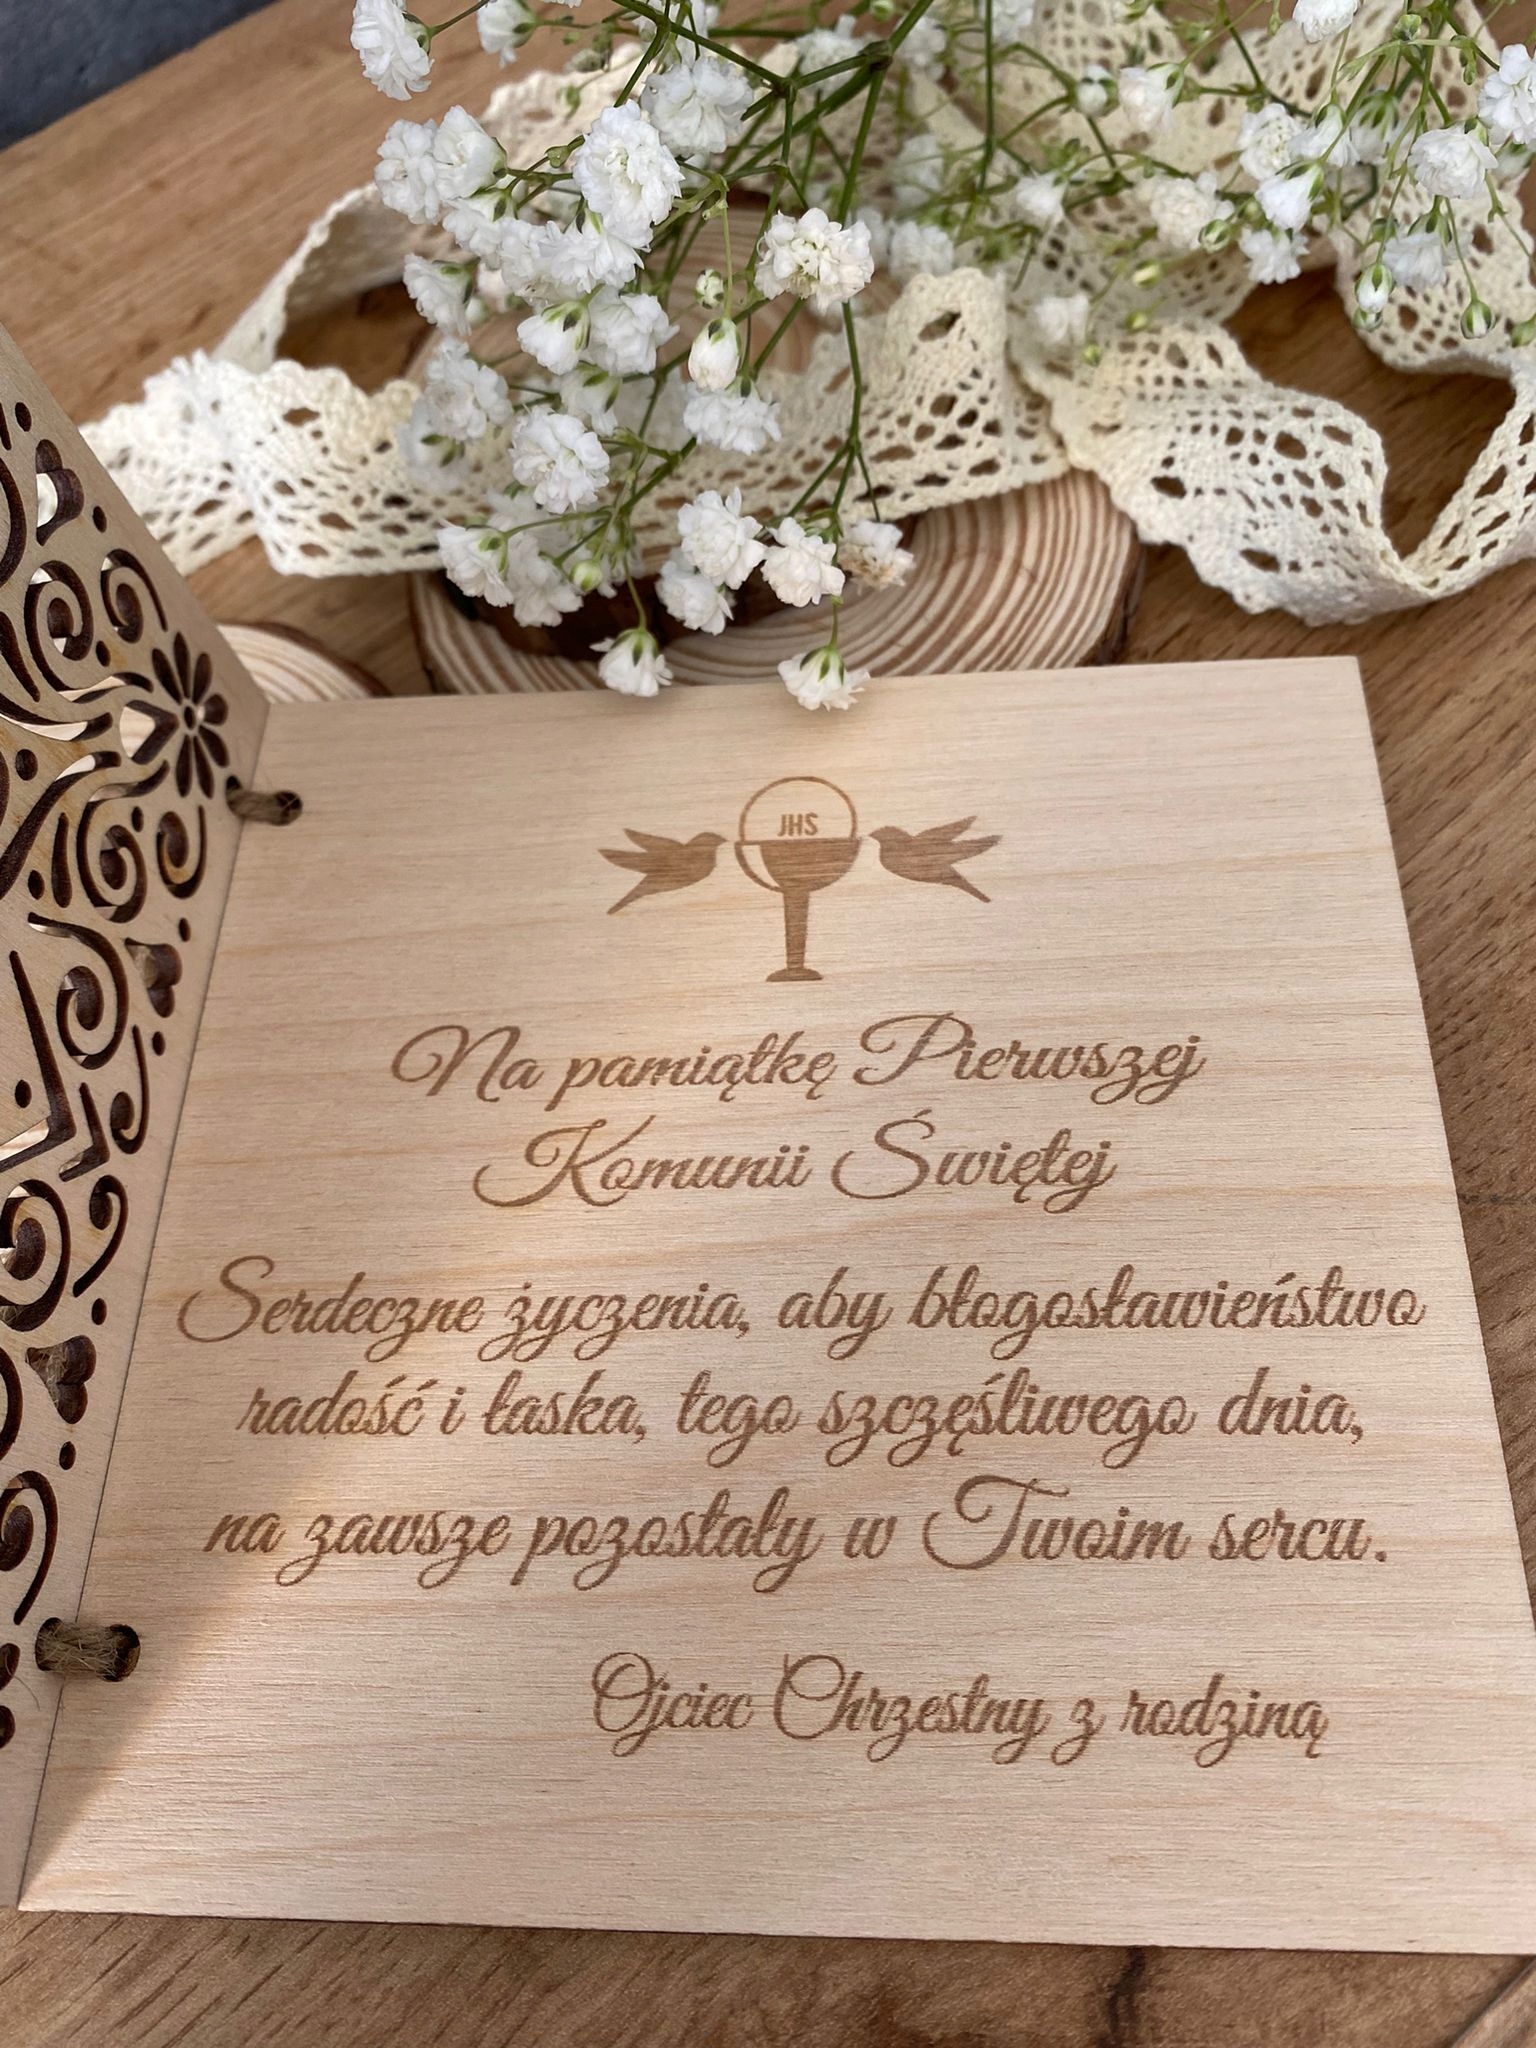 JHS
Na pamiątkę Pierwszej
Komunii Świętej
Serdeczne życzenia, aby błogosławieństwo
radość i łaska, tego szczęśliwego dnia,
na zawsze pozostały w Twoim sercu.
Ojciec Chrzestny z rodziną